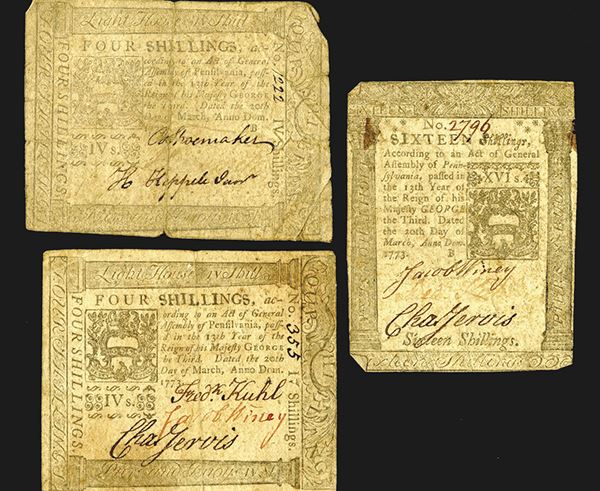 Light House IV Shill
FOUR SHILLINGS, ac-
cording to an Act of General
Assembly of Pensilvania, pass-
ed in the 13th Year of the
Reign of his Majesty GEORGE
the Third. Dated the 20th
Day of March, Anno Dom.
B
IVs.
FOUR SHILLINGS.
No. 1222 IV Shillings.
No. 2796
SIXTEEN Shillings,
According to an Act of General
Assembly of Penn-
sylvania, passed in
the 13th Year of
the Reign of his
Majesty GEORGE
the Third. Dated
the 20th Day of
March, Anno Dom.
1773. B
XVIs.
Jacob Winey
Cha Jervis
Sixteen Shillings.
Light House IV Shill
FOUR SHILLINGS, ac-
cording to an Act of General
Assembly of Pensilvania, pass-
ed in the 13th Year of the
Reign of his Majesty GEORGE
the Third. Dated the 20th
Day of March, Anno Dom.
1773.
IVs.
FOUR SHILLINGS.
No. 355 IV Shillings.
Fredk Kuhl
Jacob Winey
Cha Jervis